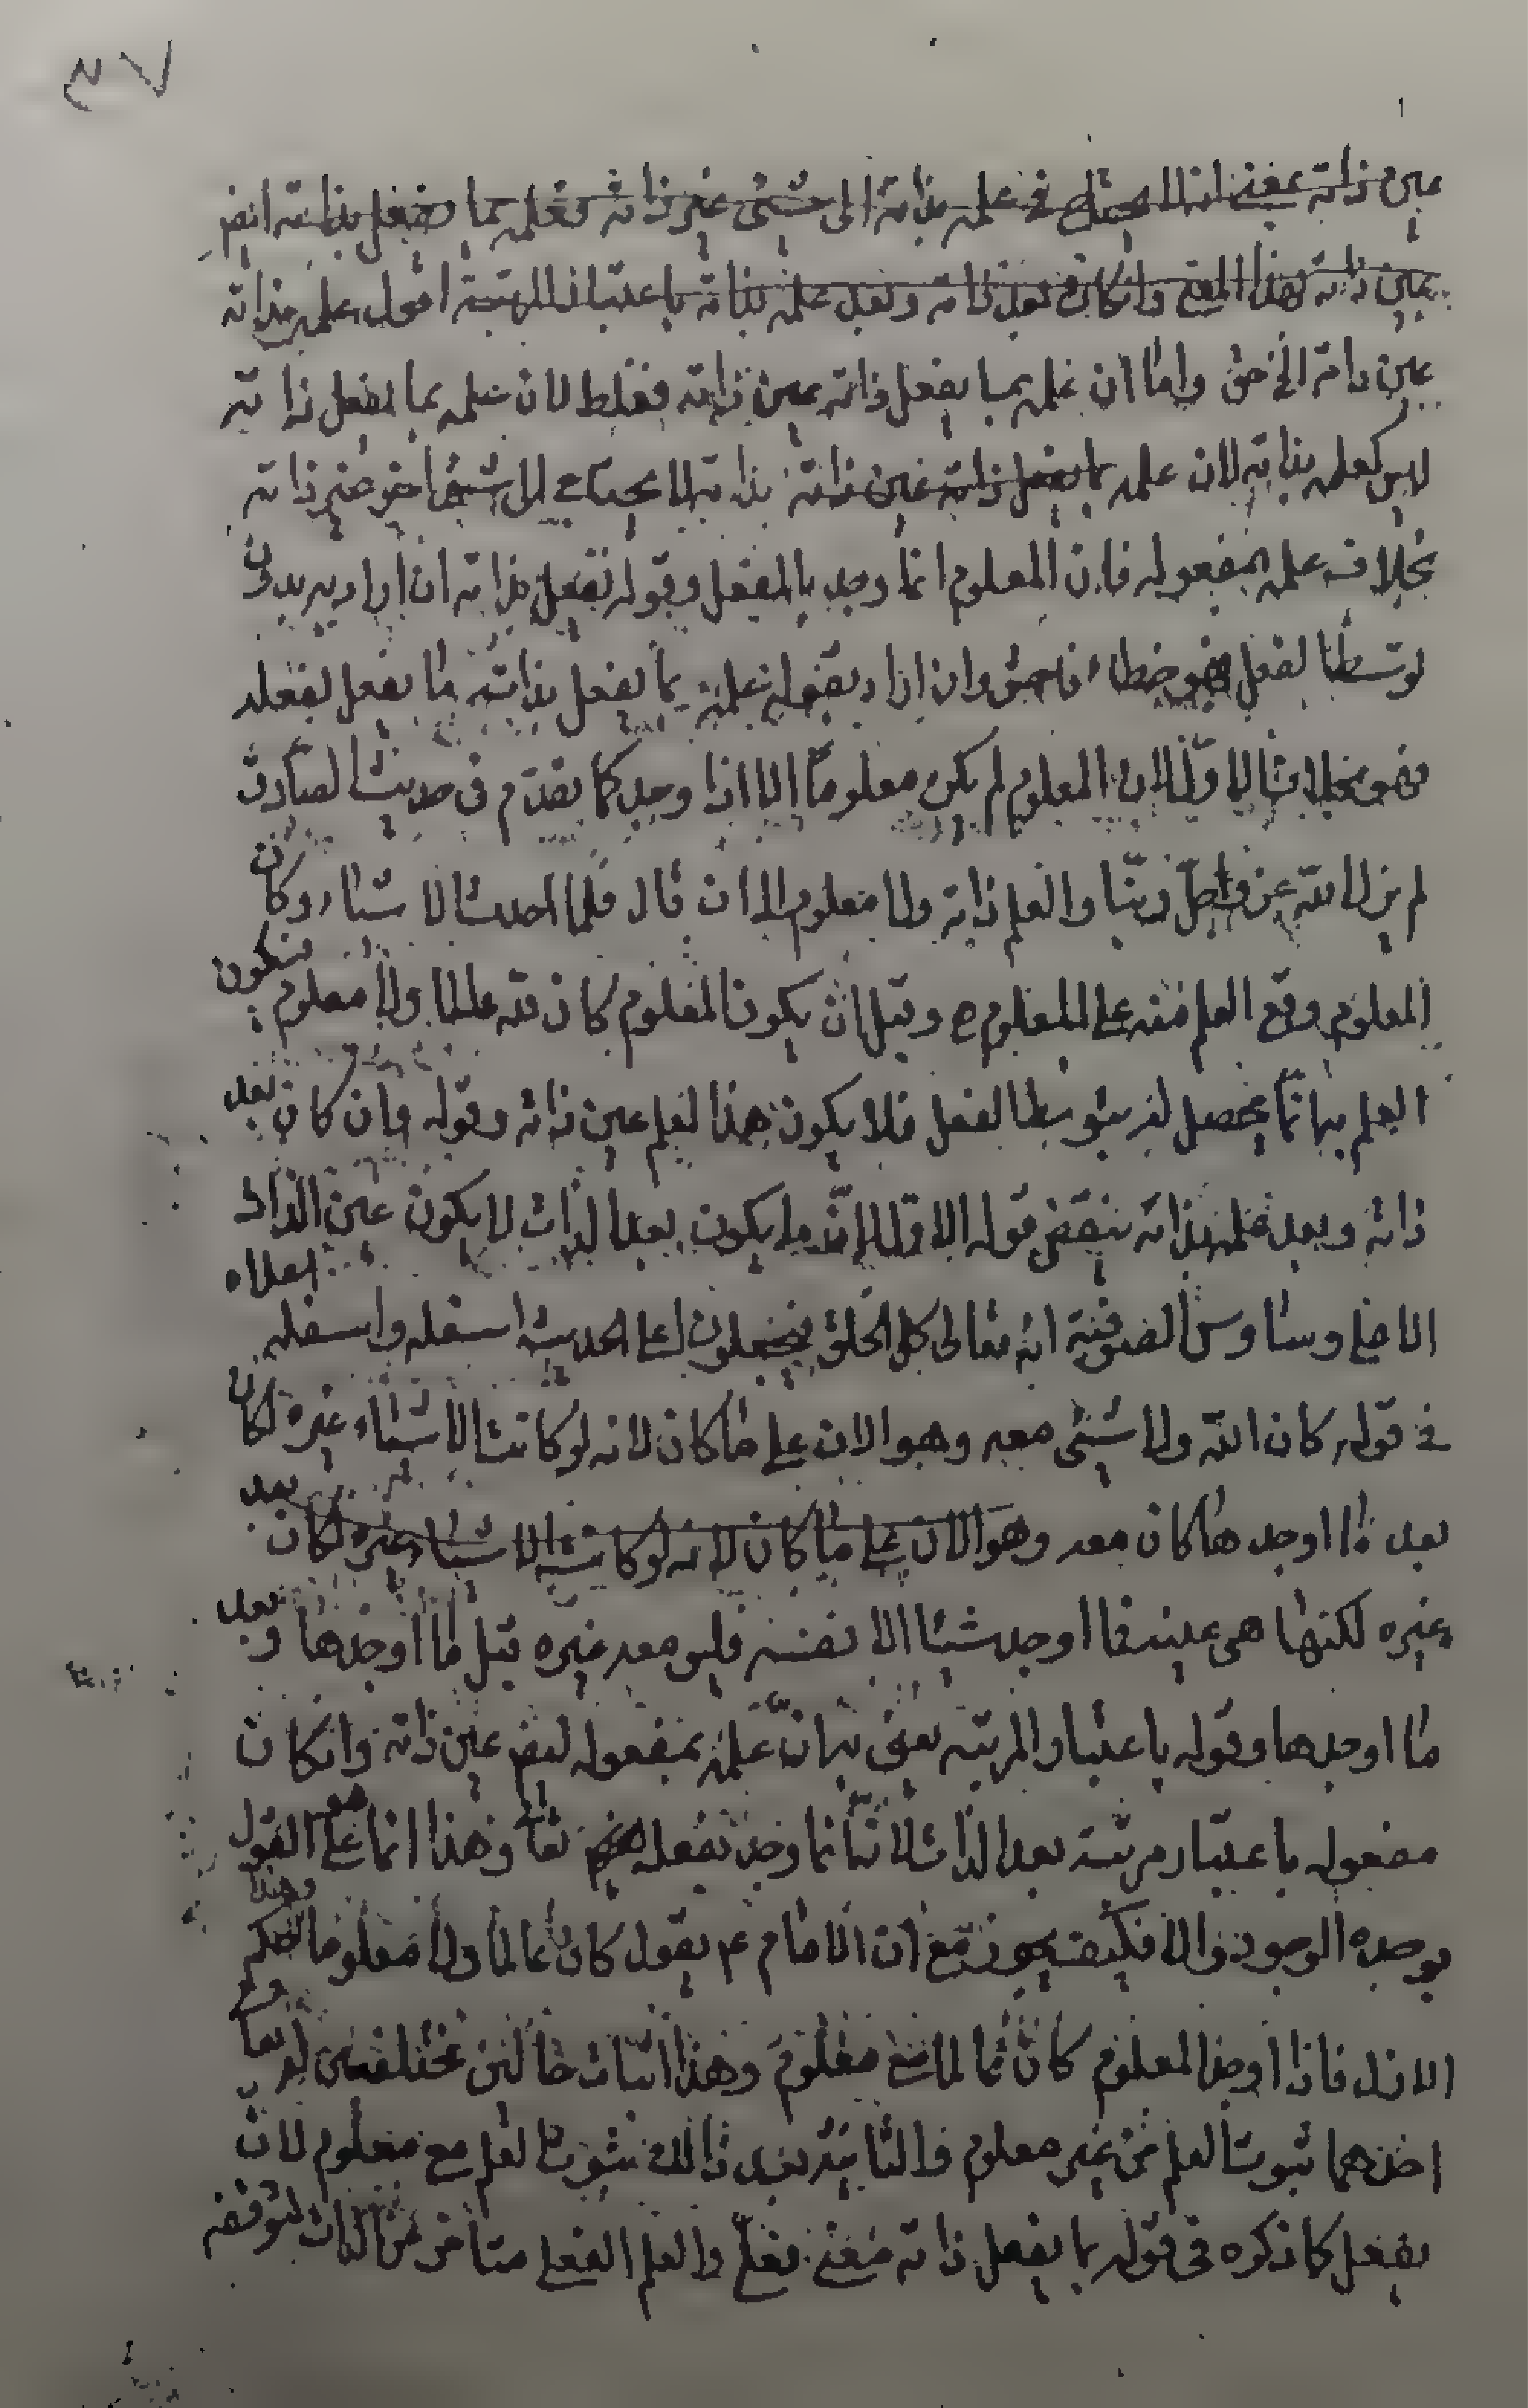 ٣٧
عين ذاته بمعنى انه لا يحتاج في علمه بذاته الى شيئ غير ذاته فعلمه بما يفعل بذاته ايض
عين ذاته بهذا المعنى وان كان بعد ذاته وبعد علمه بذاته باعتبار المرتبة اقول علمه بذاته
عين ذاته الخ حق واما ان علمه بما يفعل ذاته عين ذاته فغلط لان علمه بما يفعل ذاته
ليس كعلمه بذاته لان علمه بما يفعل ذاته عين ذاته بذاته لا يحتاج الى شيئ اخر غير ذاته
بخلاف علمه بمفعوله فان المعلوم انما وجد بالفعل وقوله يفعل بذاته ان اراد به بدون
توسط الفعل فهو خطاء فاحش وان اراد بقوله علمه بما يفعل بذاته ما يفعل بفعله
فهو بخلاف الاول لان المعلوم لم يكن معلوما الا اذا وجد كما تقدم في حديث الصادق
لم يزل الله عز وجل ربنا والعلم ذاته ولا معلوم الى ان قال فلما احدث الاشياء وكان
المعلوم وقع العلم منه على المعلوم ه وقبل ان يكون المعلوم كان الله عالما ولا معلوم فيكون
العلم بها انما يحصل له بتوسط الفعل فلا يكون هذا العلم عين ذاته وقوله وان كان بعد
ذاته وبعد علمه بذاته ينقض قوله الاول لان ما يكون بعد الذات لا يكون عين الذات
الا على وساوس الصوفية انه تعالى كل الخلق فيجعلون اعلى الحديث اسفله واسفله اعلاه
في قوله كان الله ولا شيئ معه وهو الان على ما كان لانه لو كانت الاشياء غيره لكان
بعد ما اوجدها كان معه وهو الان على ما كان لانه لو كانت الاشياء غيره لكان بعد
غيره لكنها هي عينه فما اوجد شيئا الا نفسه فليس معه غيره قبل ما اوجدها وبعد
ما اوجدها وقوله باعتبار المرتبة يعني به ان علمه بمفعوله ايض عين ذاته وان كان
مفعوله باعتبار مرتبته بعد الذات لانه انما وجد بفعله تعا وهذا انما على القول
بوحدة الوجود والا فكيف يجوز مع ان الامام ع يقول كان عالما ولا معلوم وهذا الحكم
الازل فاذا اوجد المعلوم كان عالما مع معلوم وهذا اثبات حالتين مختلفتين له تعا
احدهما ثبوت العلم من غير معلوم والثانية بعد ذلك ثبوت العلم مع معلوم لان
يفعل كما ذكره في قوله بما يفعل ذاته معنى فعلي والعلم الفعلي متاخر عن الذات لتوقفه